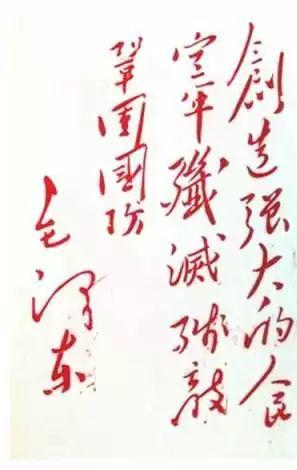 創造强大的人民
空軍殲滅殘敵
鞏固國防
毛澤东